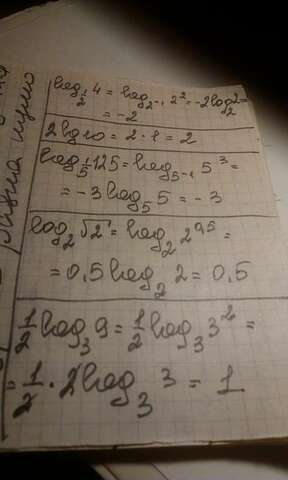 log_{1/2} 4 = log_{2^{-1}} 2^2 = -2log_2 2 =
= -2
2lg10 = 2·1 = 2
log_{1/5} 125 = log_{5^{-1}} 5^3 =
= -3log_5 5 = -3
log_2 √2 = log_2 2^{0,5} =
= 0,5log_2 2 = 0,5
1/2 log_3 9 = 1/2 log_3 3^2 =
= 1/2 · 2log_3 3 = 1